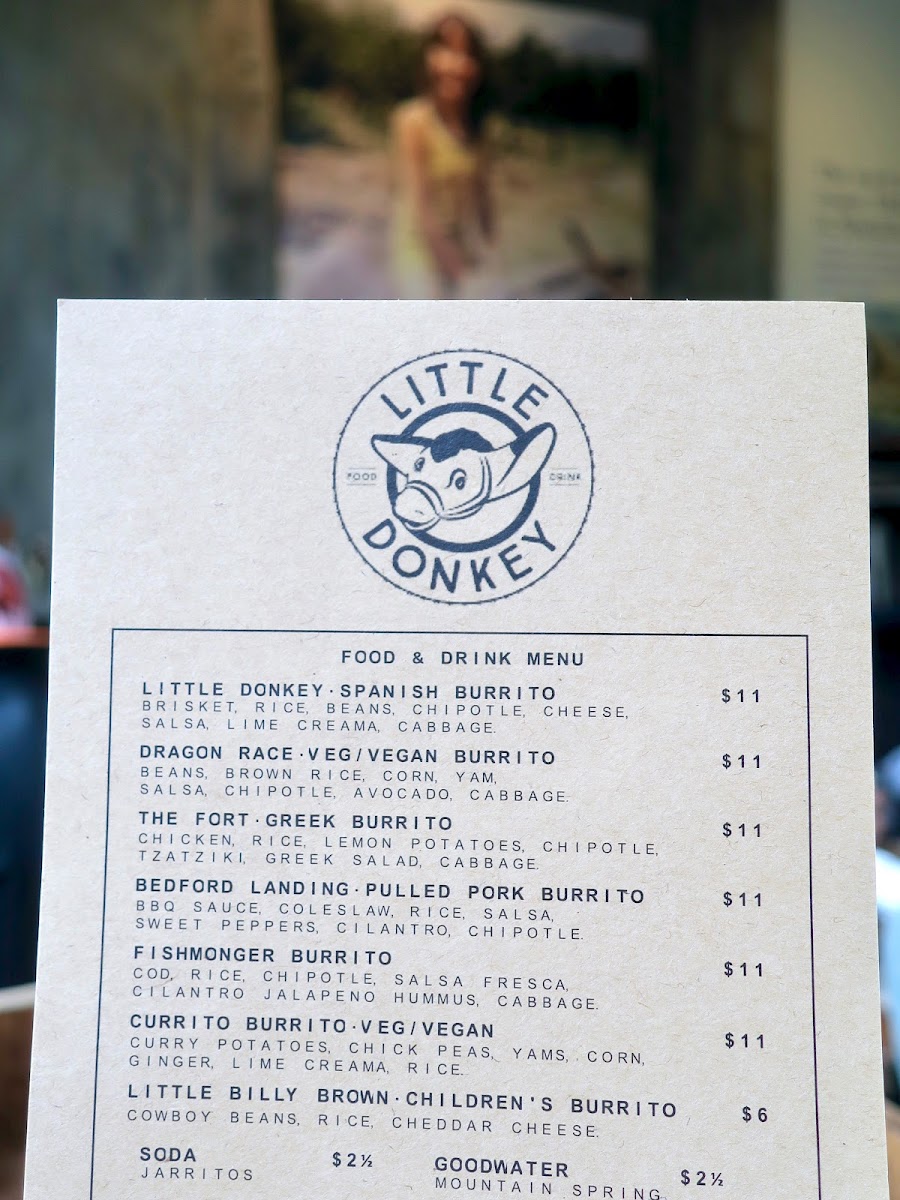 LITTLE
FOOD DRINK
DONKEY
FOOD & DRINK MENU
LITTLE DONKEY·SPANISH BURRITO $11
BRISKET, RICE, BEANS, CHIPOTLE, CHEESE,
SALSA, LIME CREAMA, CABBAGE.
DRAGON RACE·VEG/VEGAN BURRITO $11
BEANS, BROWN RICE, CORN, YAM,
SALSA, CHIPOTLE, AVOCADO, CABBAGE.
THE FORT·GREEK BURRITO $11
CHICKEN, RICE, LEMON POTATOES, CHIPOTLE,
TZATZIKI, GREEK SALAD, CABBAGE.
BEDFORD LANDING·PULLED PORK BURRITO $11
BBQ SAUCE, COLESLAW, RICE, SALSA,
SWEET PEPPERS, CILANTRO, CHIPOTLE.
FISHMONGER BURRITO $11
COD, RICE, CHIPOTLE, SALSA FRESCA,
CILANTRO JALAPENO HUMMUS, CABBAGE.
CURRITO BURRITO·VEG/VEGAN $11
CURRY POTATOES, CHICK PEAS, YAMS, CORN,
GINGER, LIME CREAMA, RICE.
LITTLE BILLY BROWN·CHILDREN'S BURRITO $6
COWBOY BEANS, RICE, CHEDDAR CHEESE.
SODA $2½ GOODWATER $2½
JARRITOS MOUNTAIN SPRING